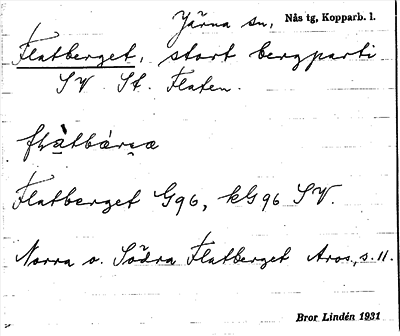 Järna sn, Nås tg, Kopparb. l.
Flatberget, stort bergparti
SV St. Flaten.
Flatberget G96, kG96 SV.
Norra o. Södra Flatberget Aros, s. 11.
Bror Lindén 1931